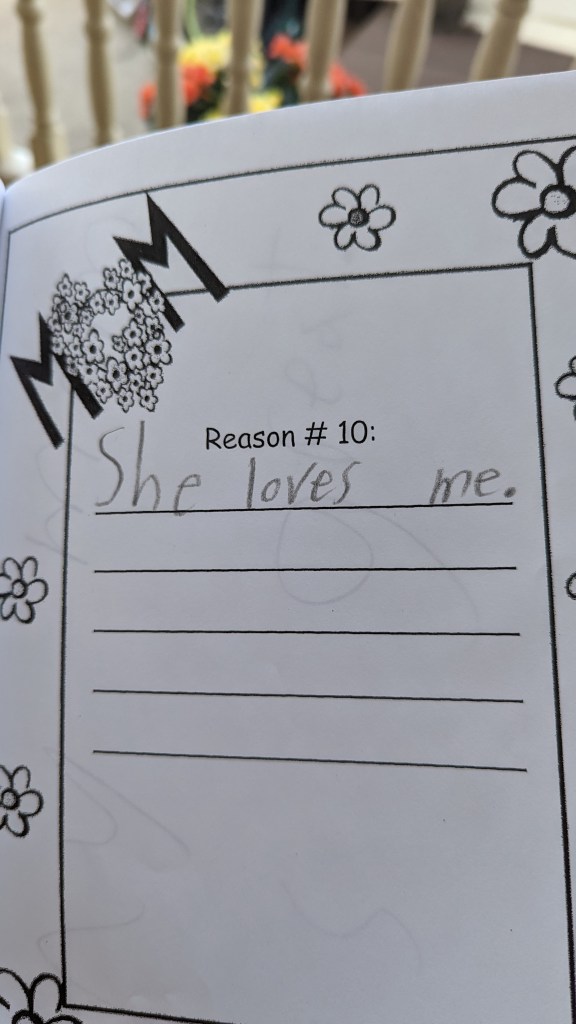 MOM
Reason # 10:
She loves me.